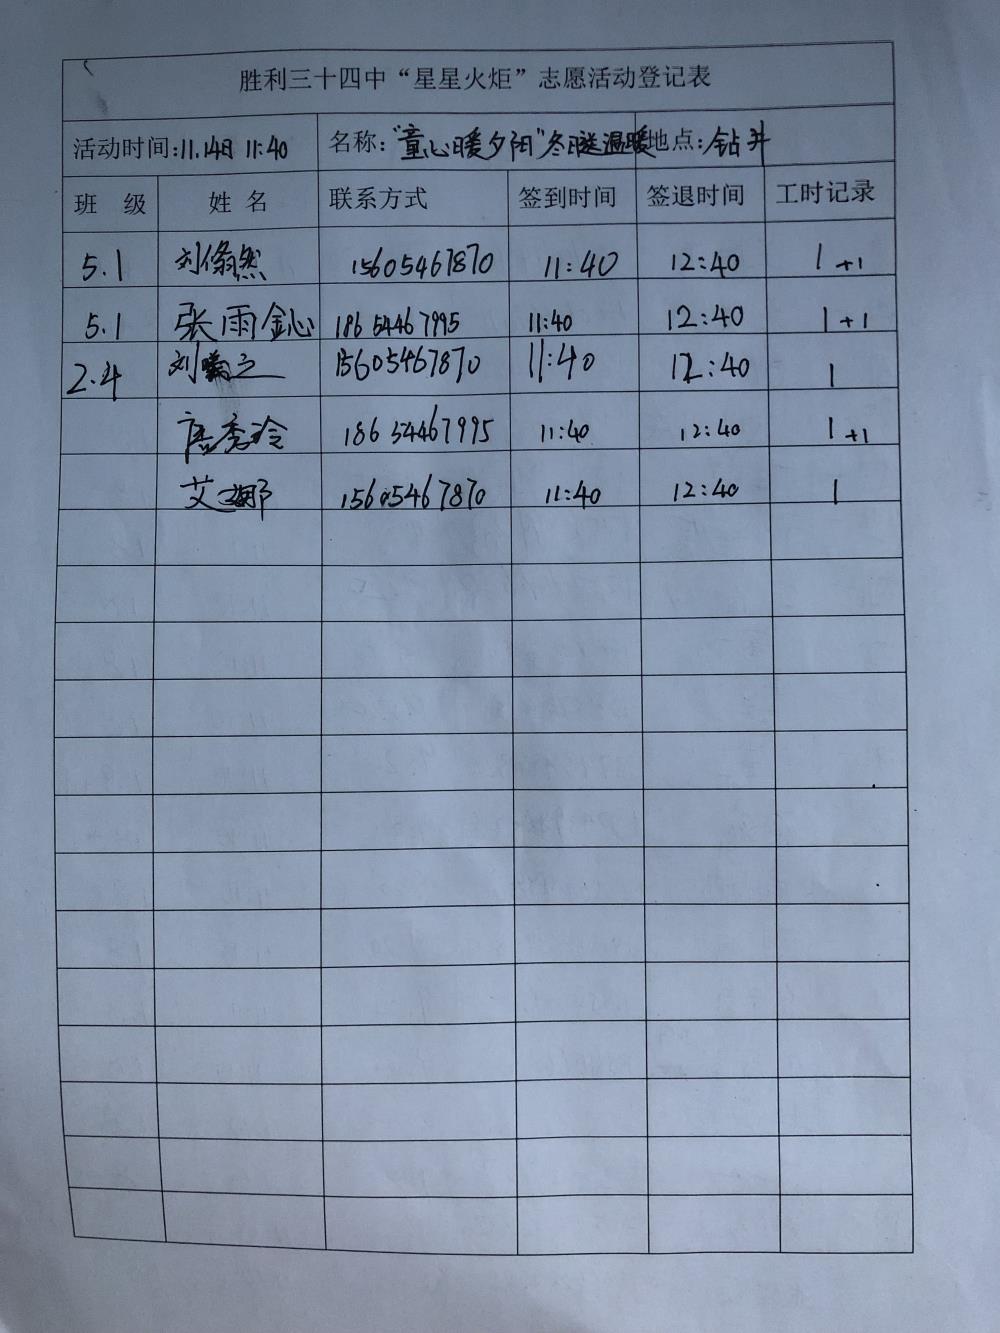 胜利三十四中“星星火炬”志愿活动登记表
活动时间:11.14日 11:40 名称:“童心暖夕阳”冬日送温暖 地点:钻井
班 级 姓 名 联系方式 签到时间 签退时间 工时记录
5.1 刘翛然 15605467870 11:40 12:40 1 +1
5.1 张雨鑫 18654467995 11:40 12:40 1 +1
2.4 刘 之 15605467870 11:40 12:40 1
唐秀玲 18654467995 11:40 12:40 1 +1
艾 娜 15605467870 11:40 12:40 1